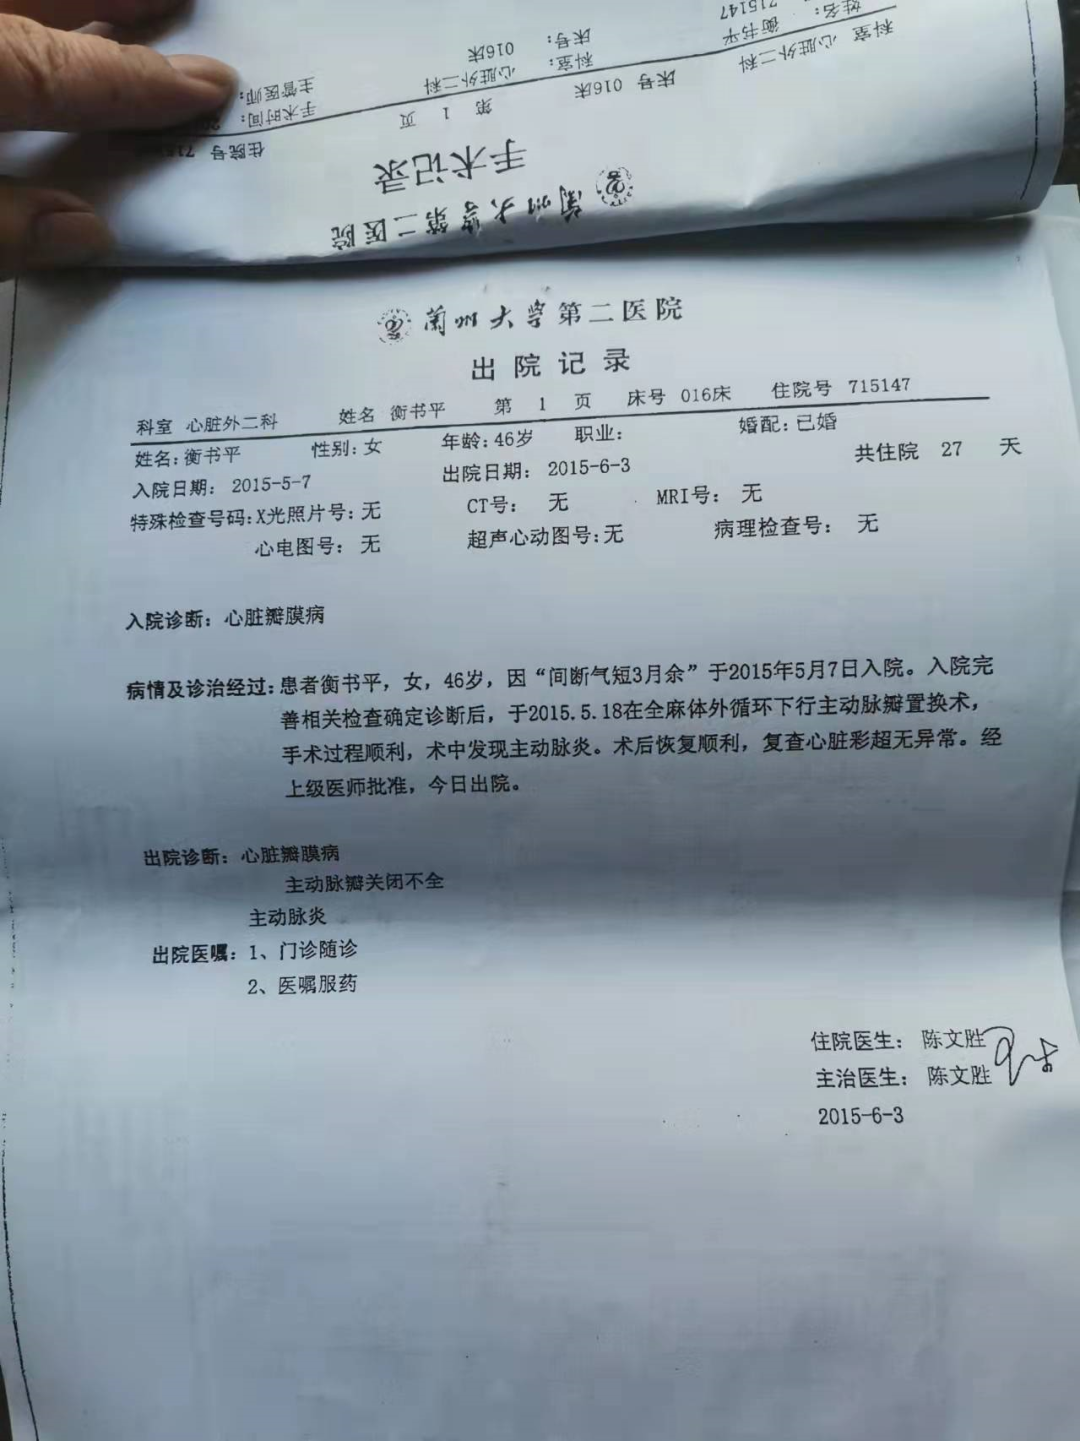 姓名： 衡书平 715147
科室 心脏外二科
床号： 016床
科室： 心脏外二科
床号 016床
主管医师：
手术时间：
第 1 页
住院号 715
手术记录
兰州大学第二医院
兰州大学第二医院
出院记录
科室 心脏外二科 姓名 衡书平 第 1 页 床号 016床 住院号 715147
姓名：衡书平 性别：女 年龄：46岁 职业： 婚配：已婚
入院日期： 2015-5-7 出院日期： 2015-6-3 共住院 27 天
特殊检查号码：X光照片号：无 CT号： 无 MRI号： 无
心电图号： 无 超声心动图号：无 病理检查号： 无
入院诊断：心脏瓣膜病
病情及诊治经过：患者衡书平，女，46岁，因“间断气短3月余”于2015年5月7日入院。入院完
善相关检查确定诊断后，于2015.5.18在全麻体外循环下行主动脉瓣置换术，
手术过程顺利，术中发现主动脉炎。术后恢复顺利，复查心脏彩超无异常。经
上级医师批准，今日出院。
出院诊断：心脏瓣膜病
主动脉瓣关闭不全
主动脉炎
出院医嘱：1、门诊随诊
2、医嘱服药
住院医生： 陈文胜
主治医生： 陈文胜
2015-6-3